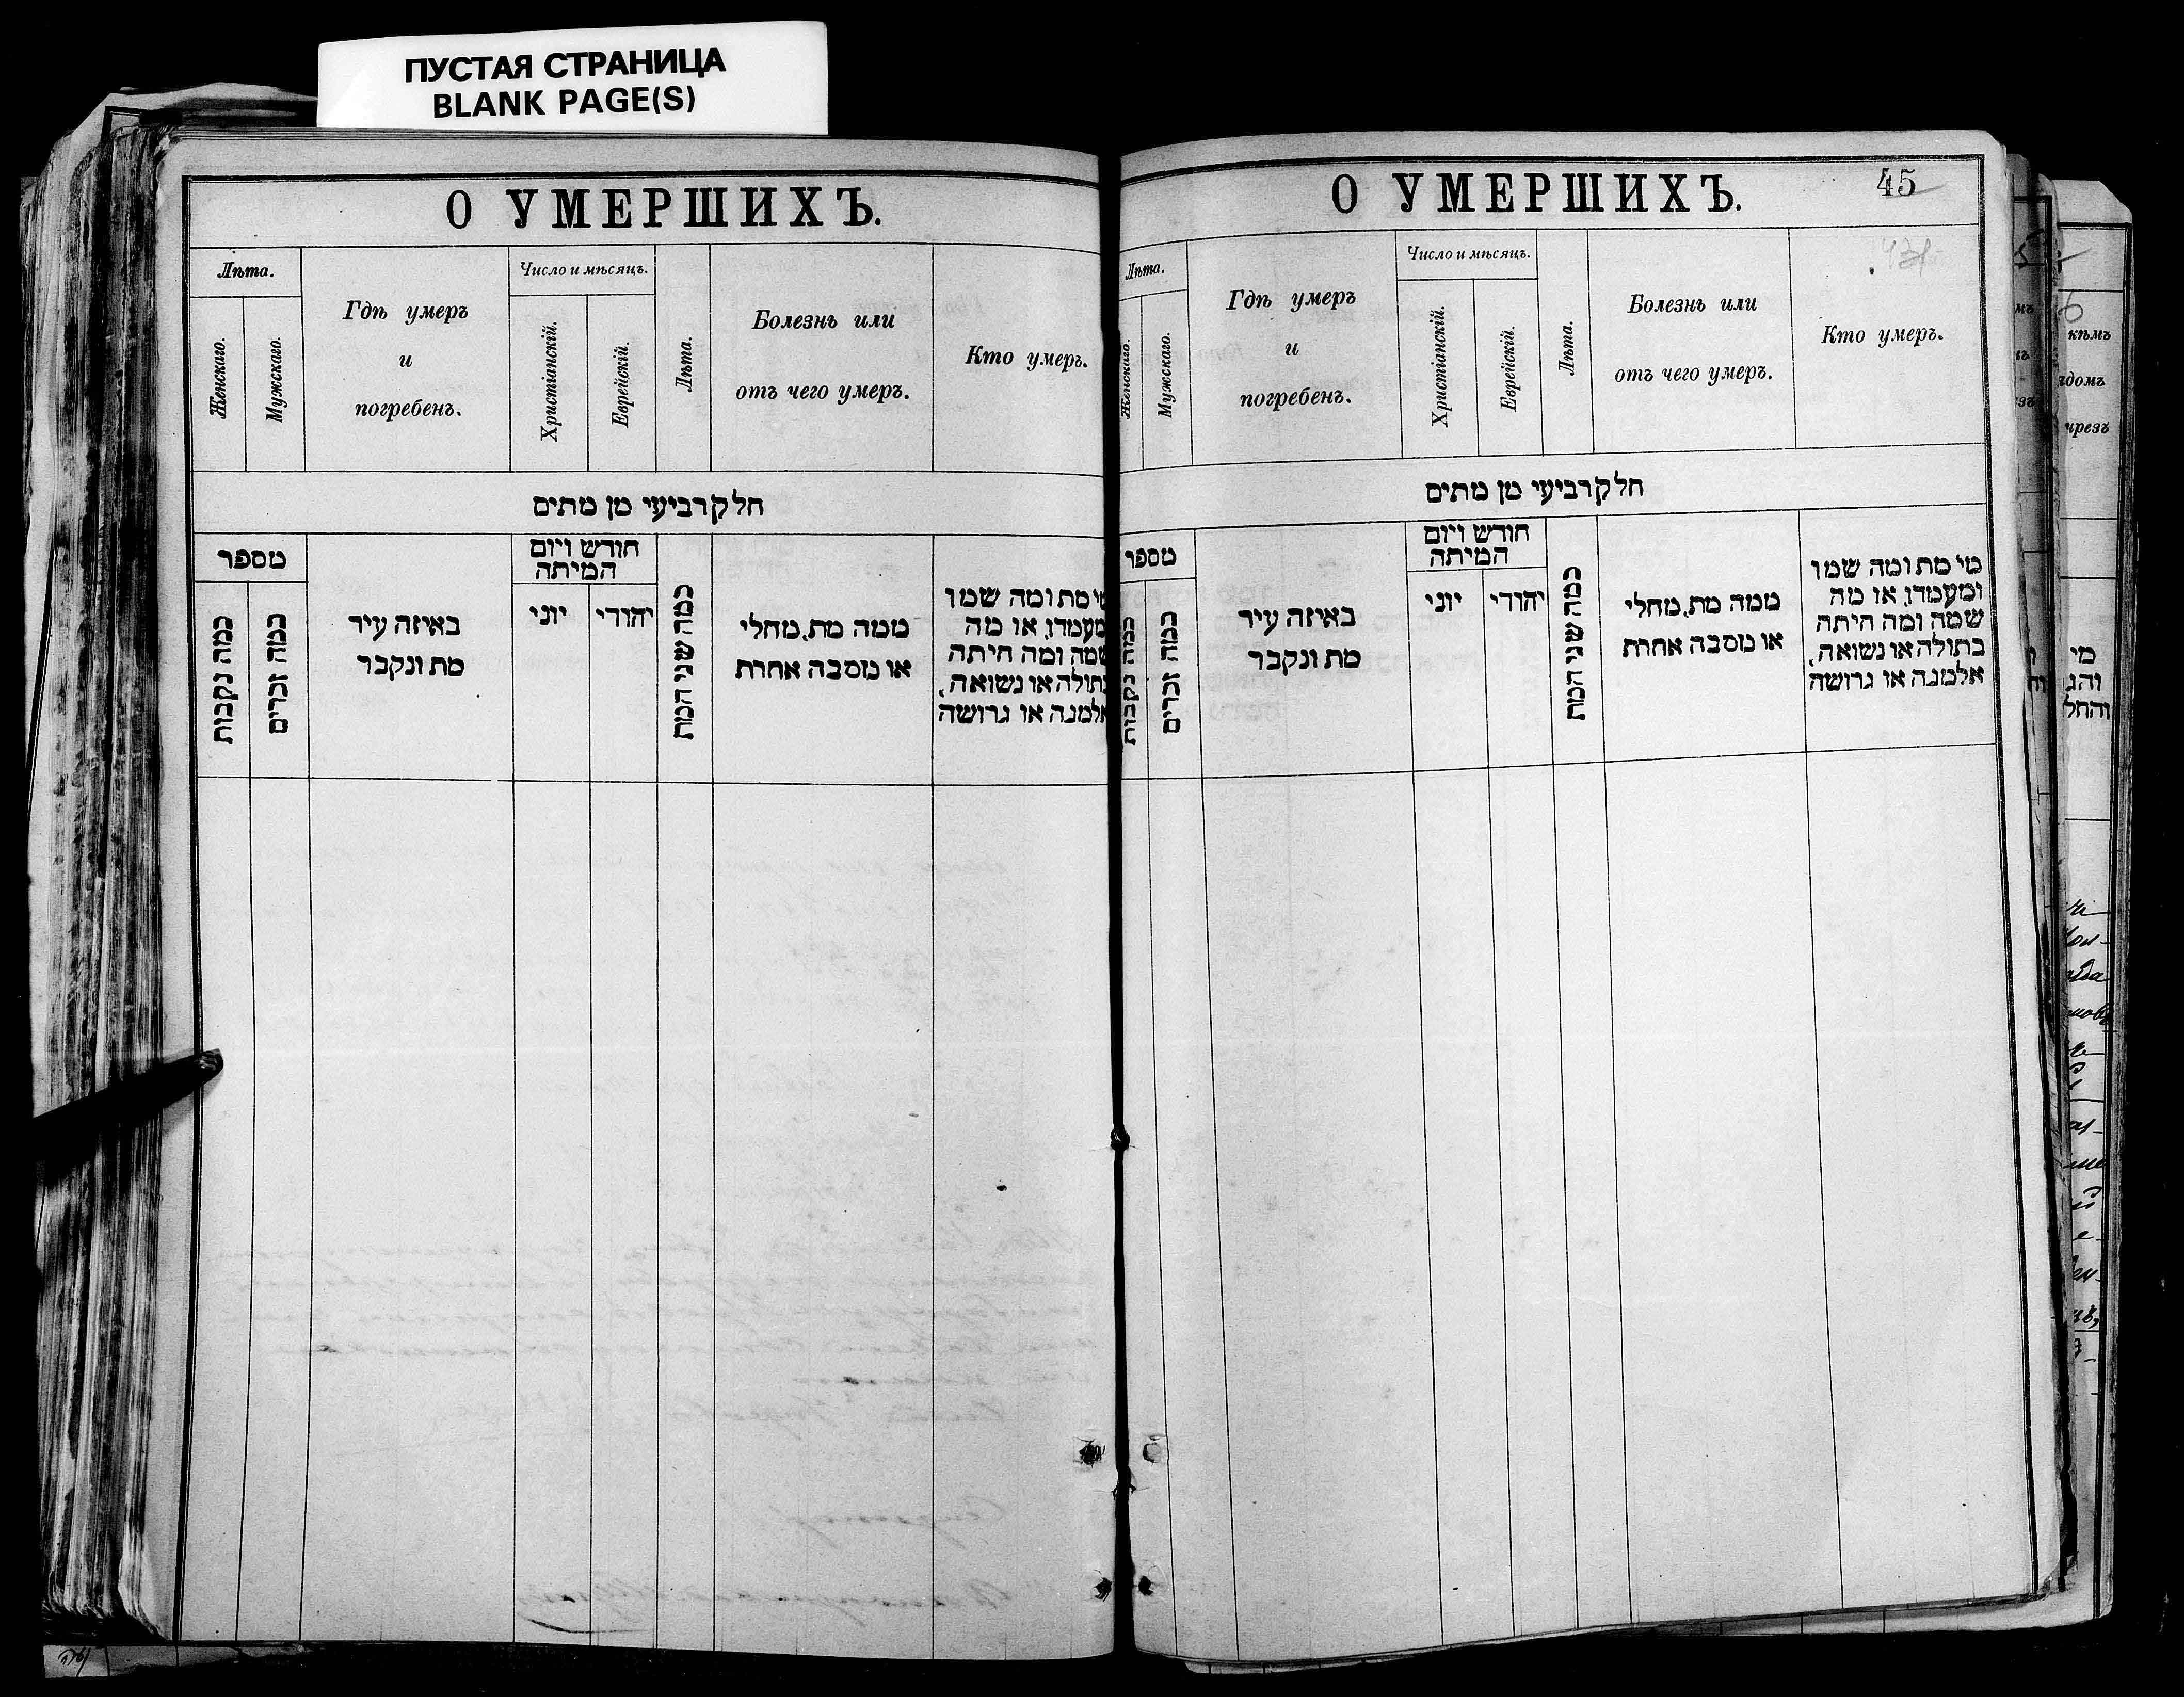 ПУСТАЯ СТРАНИЦА
BLANK PAGE(S)
О УМЕРШИХЪ.
Лѣта.
Женскаго.
Мужскаго.
Гдѣ умеръ
и
погребенъ.
Число и мѣсяцъ.
Христіанскій.
Еврейскій.
Лѣта.
Болезнь или
отъ чего умеръ.
Кто умеръ.
חלק רביעי מן מתים
מספר
כמה נקבות
כמה זכרים
באיזה עיר
מת ונקבר
חודש ויום
המיתה
יוני
יהודי
כמה שני המת
ממה מת, מחלי
או מסבה אחרת
מי מת ומה שמו
ומעמדו, או מה
שמה ומה היתה
בתולה או נשואה,
אלמנה או גרושה
О УМЕРШИХЪ.
45
Лѣта.
Женскаго.
Мужскаго.
Гдѣ умеръ
и
погребенъ.
Число и мѣсяцъ.
Христіанскій.
Еврейскій.
Лѣта.
Болезнь или
отъ чего умеръ.
Кто умеръ.
חלק רביעי מן מתים
מספר
כמה נקבות
כמה זכרים
באיזה עיר
מת ונקבר
חודש ויום
המיתה
יוני
יהודי
כמה שני המת
ממה מת, מחלי
או מסבה אחרת
מי מת ומה שמו
ומעמדו, או מה
שמה ומה היתה
בתולה או נשואה,
אלמנה או גרושה
кѣмъ
ядомъ
чрезъ
מי
והג
והחל